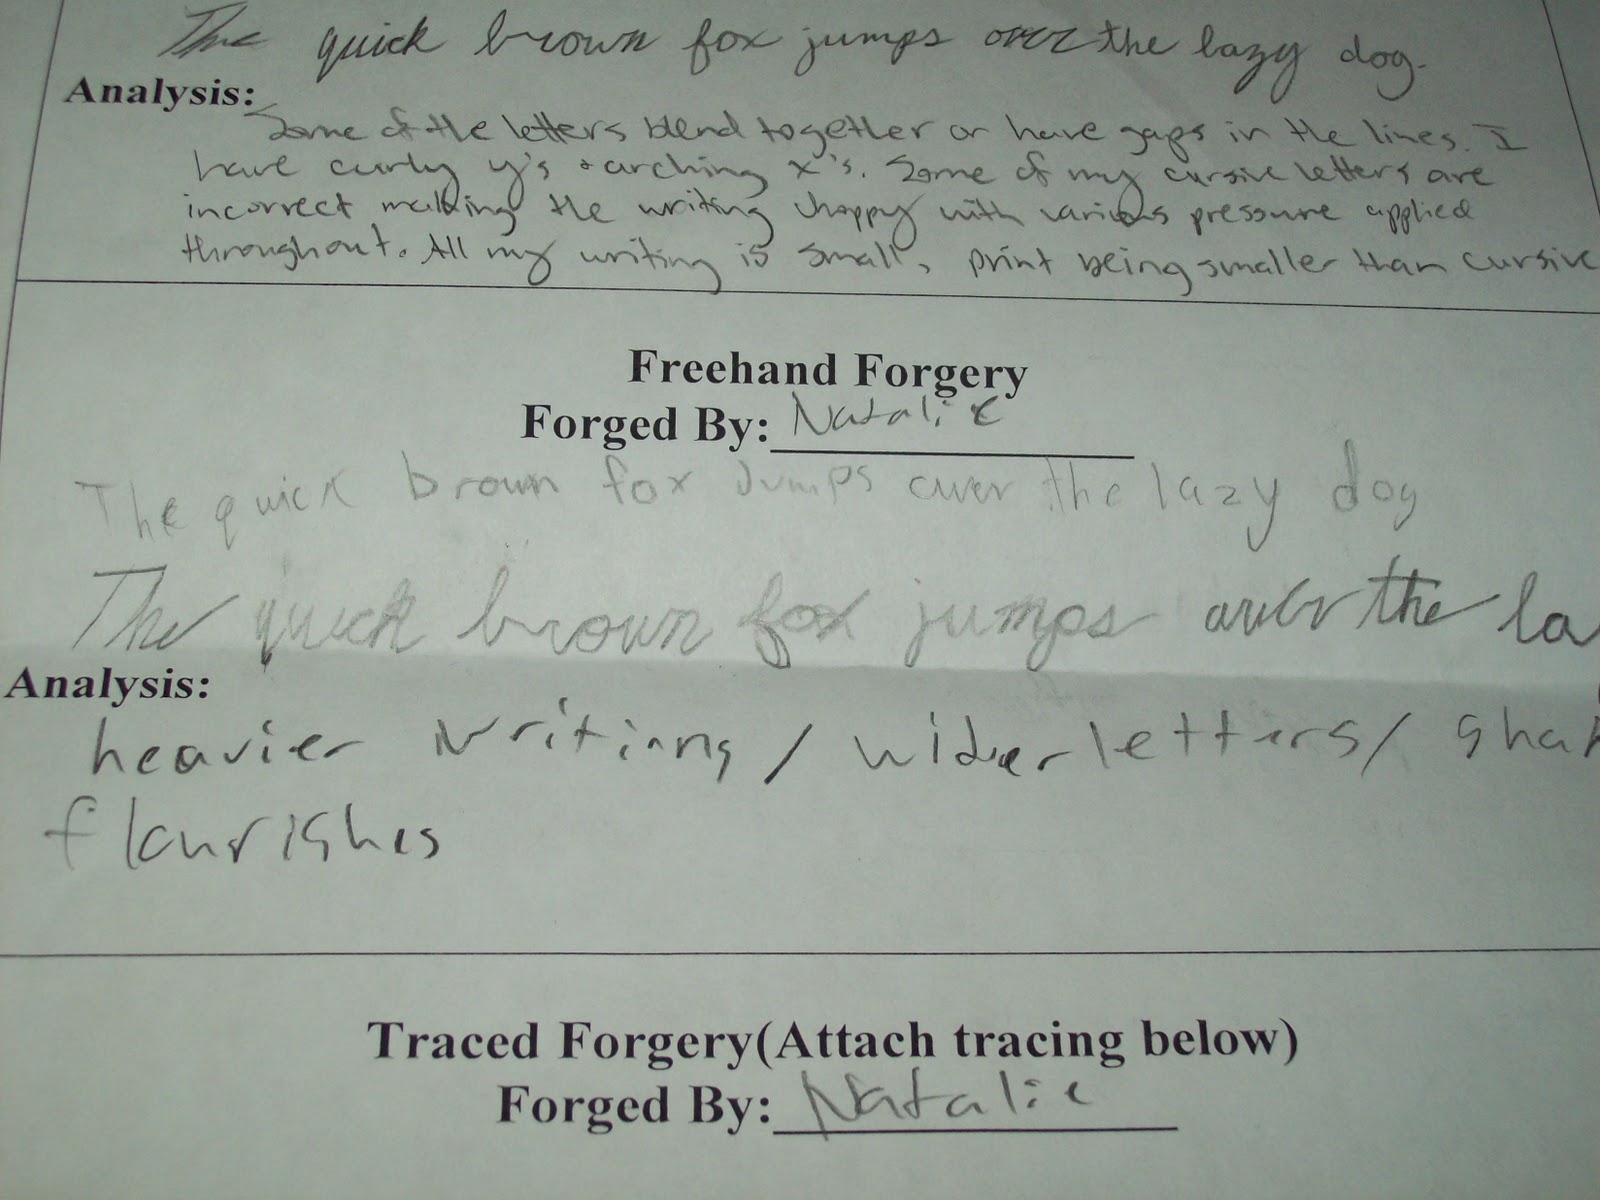 The quick brown fox jumps over the lazy dog.
Analysis:
Some of the letters blend together or have gaps in the lines. I
have curly y's + arching x's. Some of my cursive letters are
incorrect making the writing choppy with various pressure applied
throughout. All my writing is small, print being smaller than cursive
Freehand Forgery
Forged By: Natalie
The quick brown fox Jumps over the lazy dog
The quick brown fox jumps over the la
Analysis:
heavier writing / wider letters /
flourishes
Traced Forgery(Attach tracing below)
Forged By: Natalie